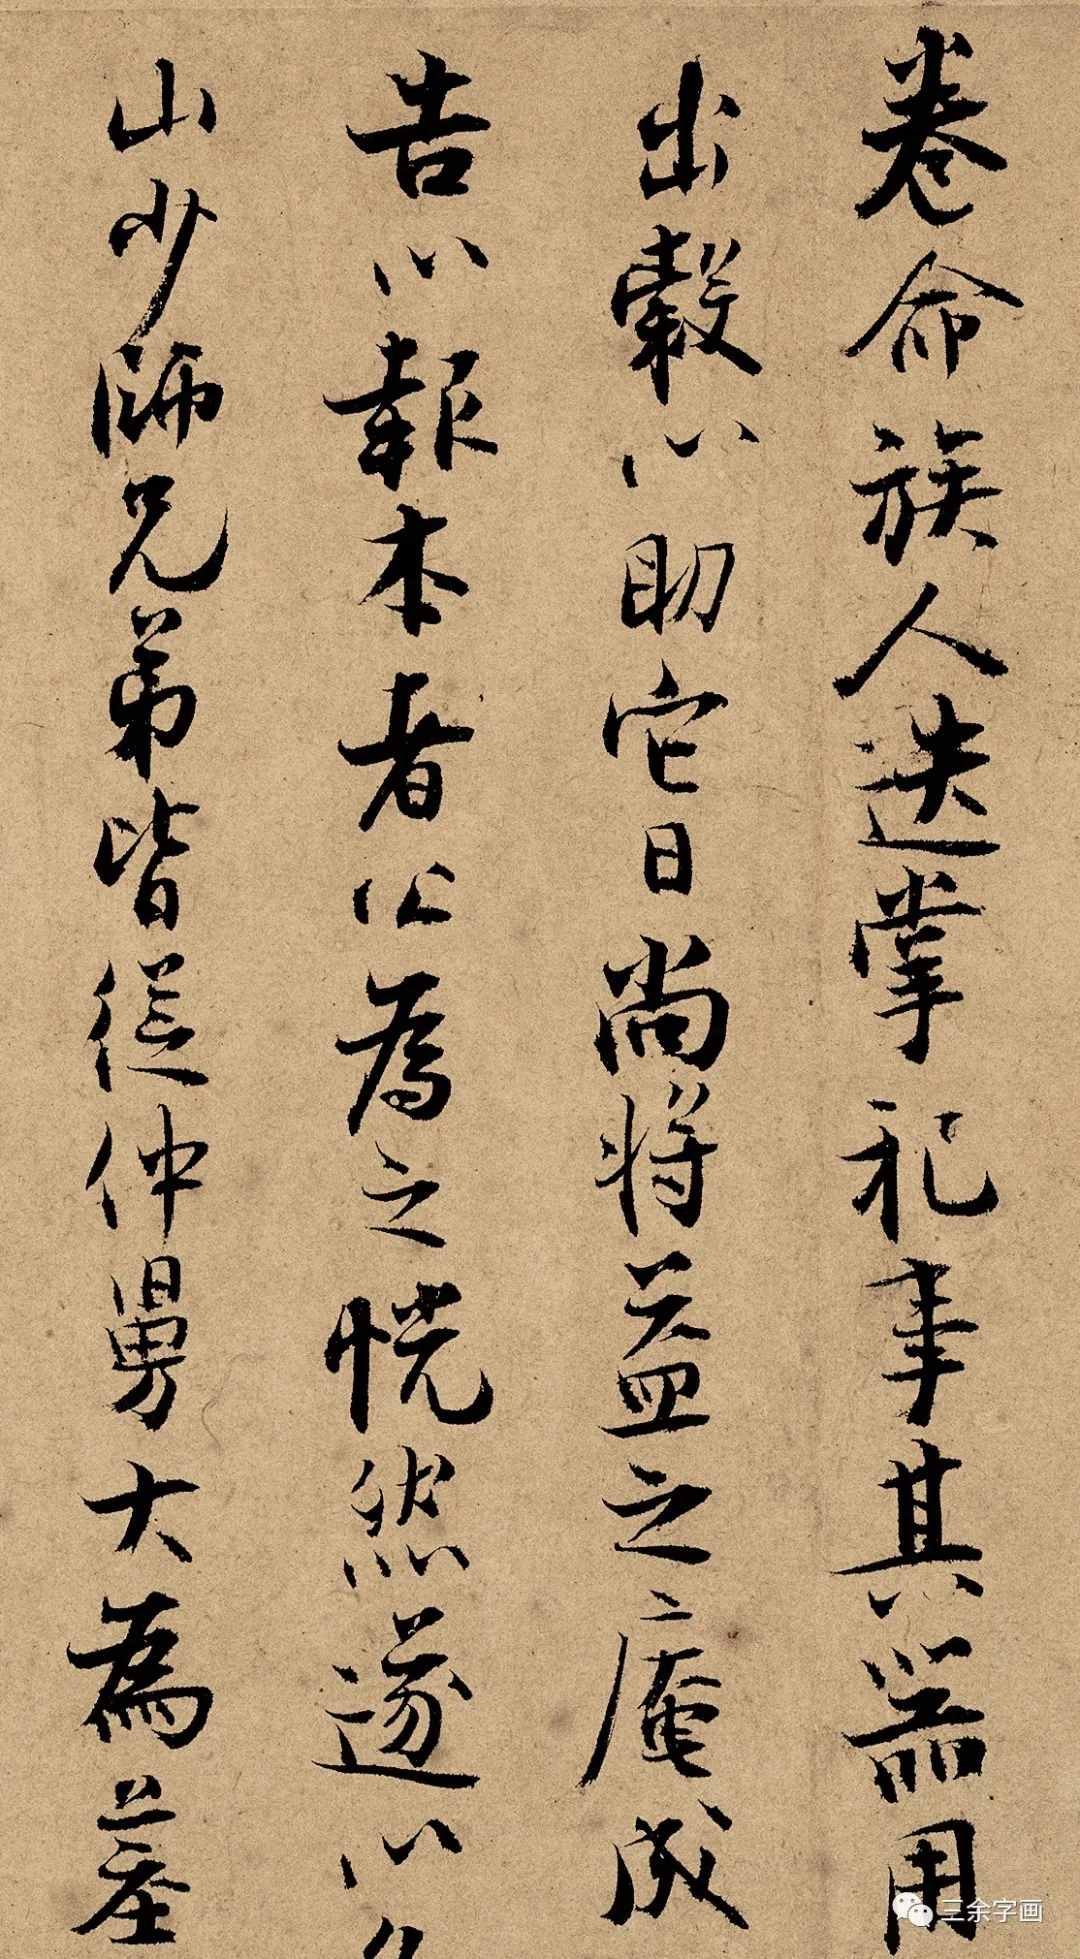 卷命族人迭掌祀事其器用
出穀以助它日尚将益之庵成
告以報本者公為之恍然遂以名
山少師兄弟皆從仲舅大為
三余字画